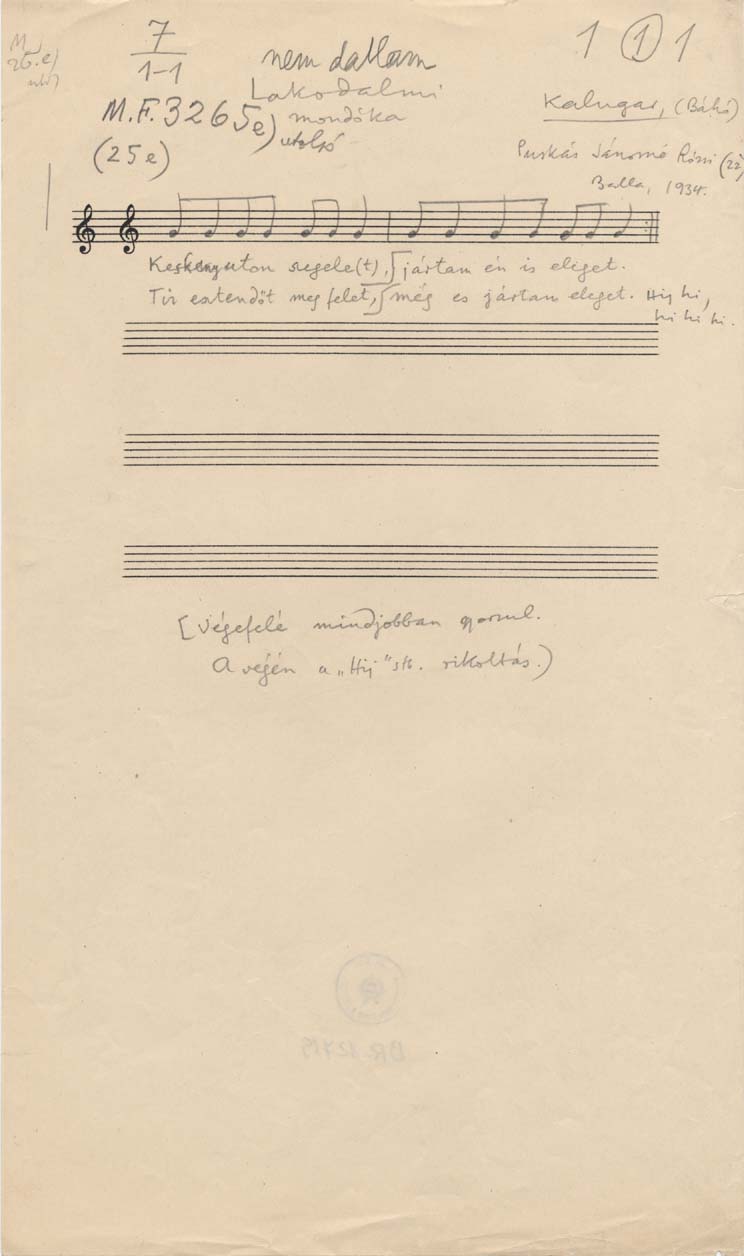 7
1-1
nem dallam
1 1 1
M.F. 3265e)
Lakodalmi
mondóka
utolsó
(25e)
Kalugar, (Bákó)
Puskás Jánosné Rózsi (22)
Balla, 1934.
Keskenyuton szegele(t), jártam én is eliget.
Tiz esztendőt meg felet, még es jártam eleget. Hij hi,
hi hi hi.
[Végefelé mindjobban gyorsul.
A végén a „Hij" stb. rikoltás.)